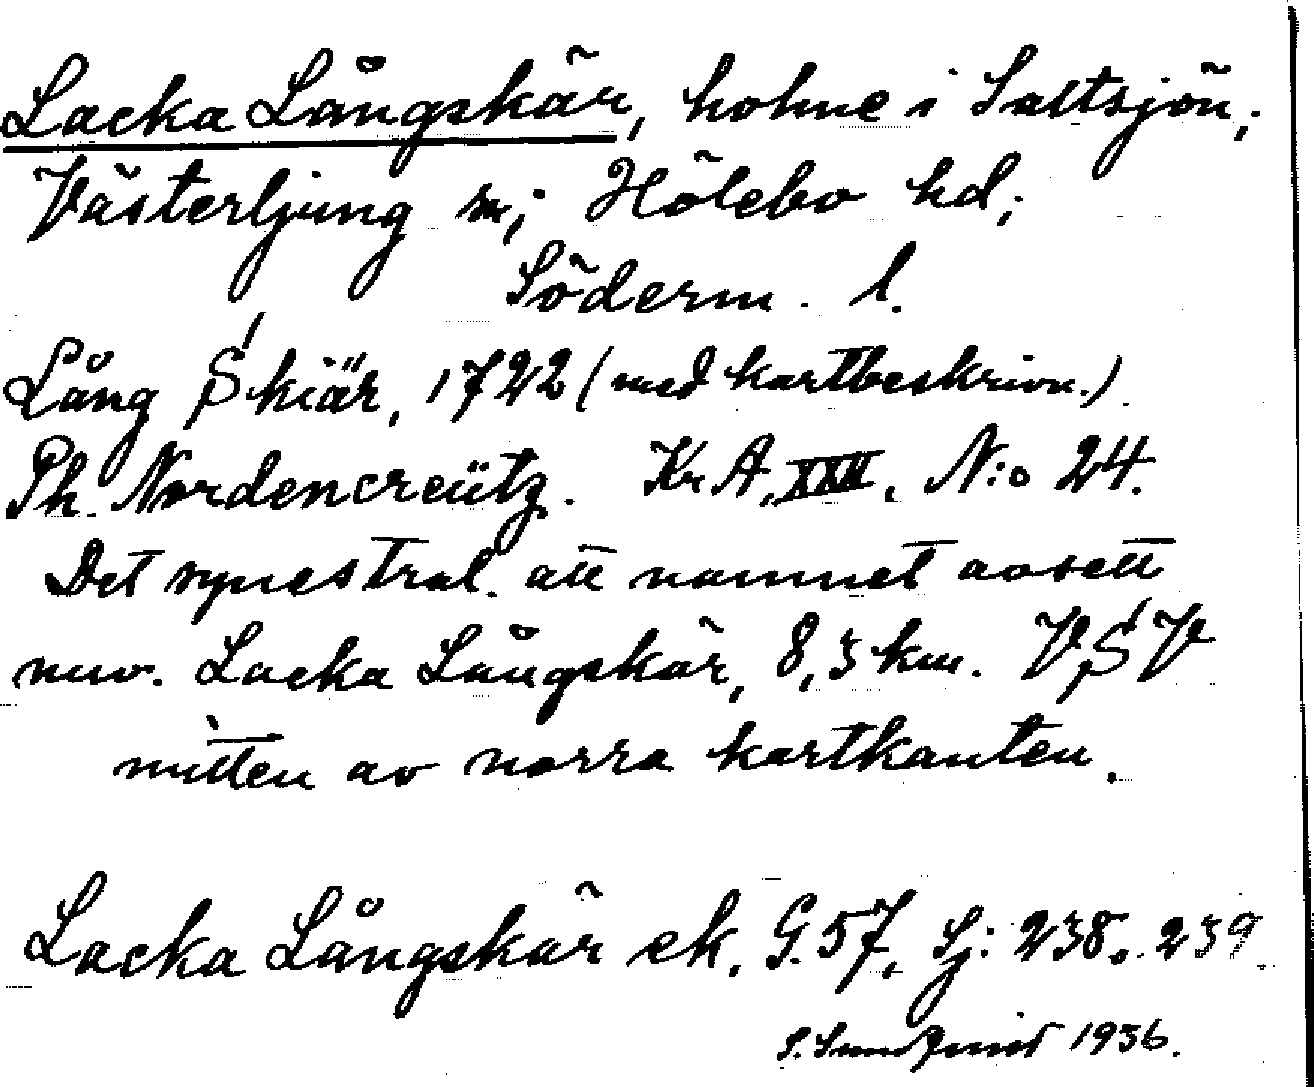 Lacka Långskär, holme i Saltsjön;
Västerljung sn; Hölebo hd;
Söderm. l.
Lång Skiär, 1722 (med kartbeskrivn.).
Ph. Nordencreütz. Kr A, XXII, N:o 24.
Det synes tral. att namnet avsett
nuv. Lacka Långskär, 8,3 km. VSV
mitten av norra kartkanten.
Lacka Långskär ek. G. 57, Sj: 238. 239
S. Sundquist 1936.